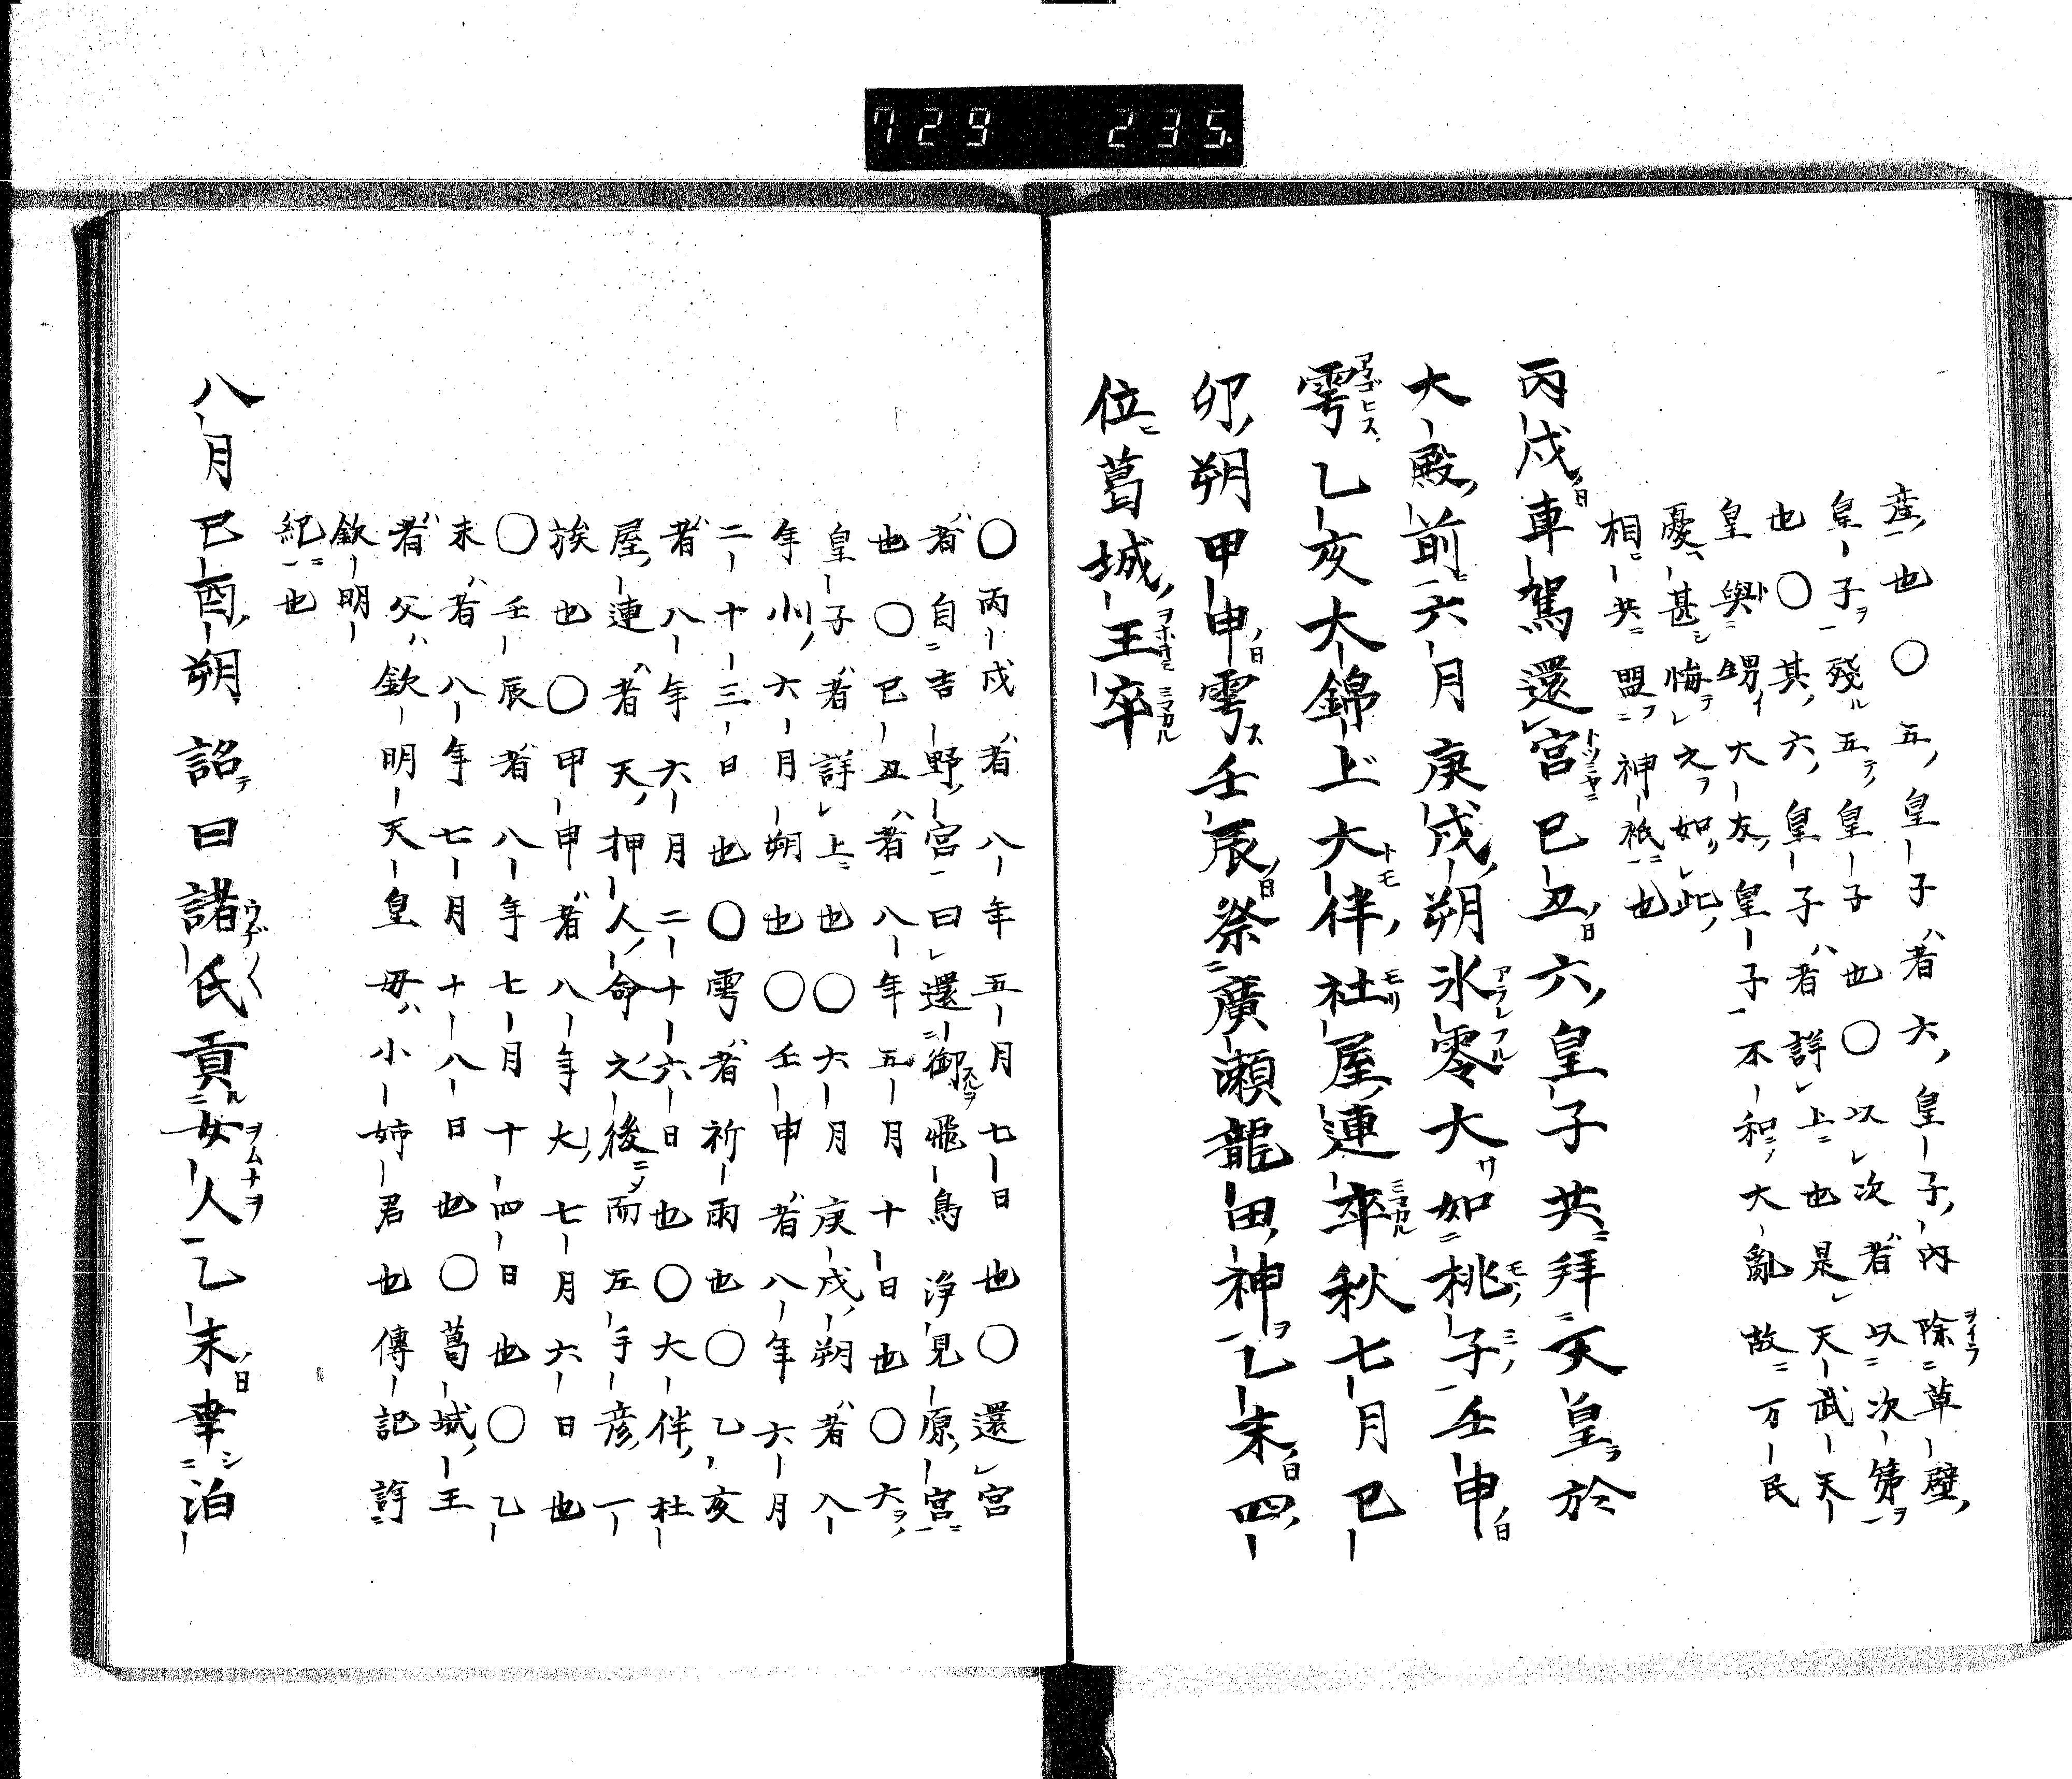 729 235
産也〇五皇子者六皇子內除草壁
皇子殘五皇子也〇以次者以次第
也〇其六皇子者詳上也是天武天
皇與甥大友皇子不和大亂故万民
憂甚悔之如此
相共盟神祇也
丙戌車駕還宮己丑六皇子共拜天皇於
大殿前六月庚戌朔氷零大如桃子壬申
雩乙亥大錦上大伴社屋連卒秋七月己
卯朔甲申雩壬辰祭廣瀬龍田神乙未四
位葛城王卒
〇丙戌者八年五月七日也〇還宮
者自吉野宮曰還御飛鳥浄見原宮
也〇己丑者八年五月十日也〇六
皇子者詳上也〇六月庚戌朔者八
年小六月朔也〇壬申者八年六月
二十三日也〇雩者祈雨也〇乙亥
者八年六月二十六日也〇大伴杜
屋連者天押人命之後而左手彦一
族也〇甲申者八年大七月六日也
〇壬辰者八年七月十四日也〇乙
未者八年七月十八日也〇葛城王
者父欽明天皇母小姉君也傳記詳
欽明
紀也
八月己酉朔詔曰諸氏貢女人乙未幸泊